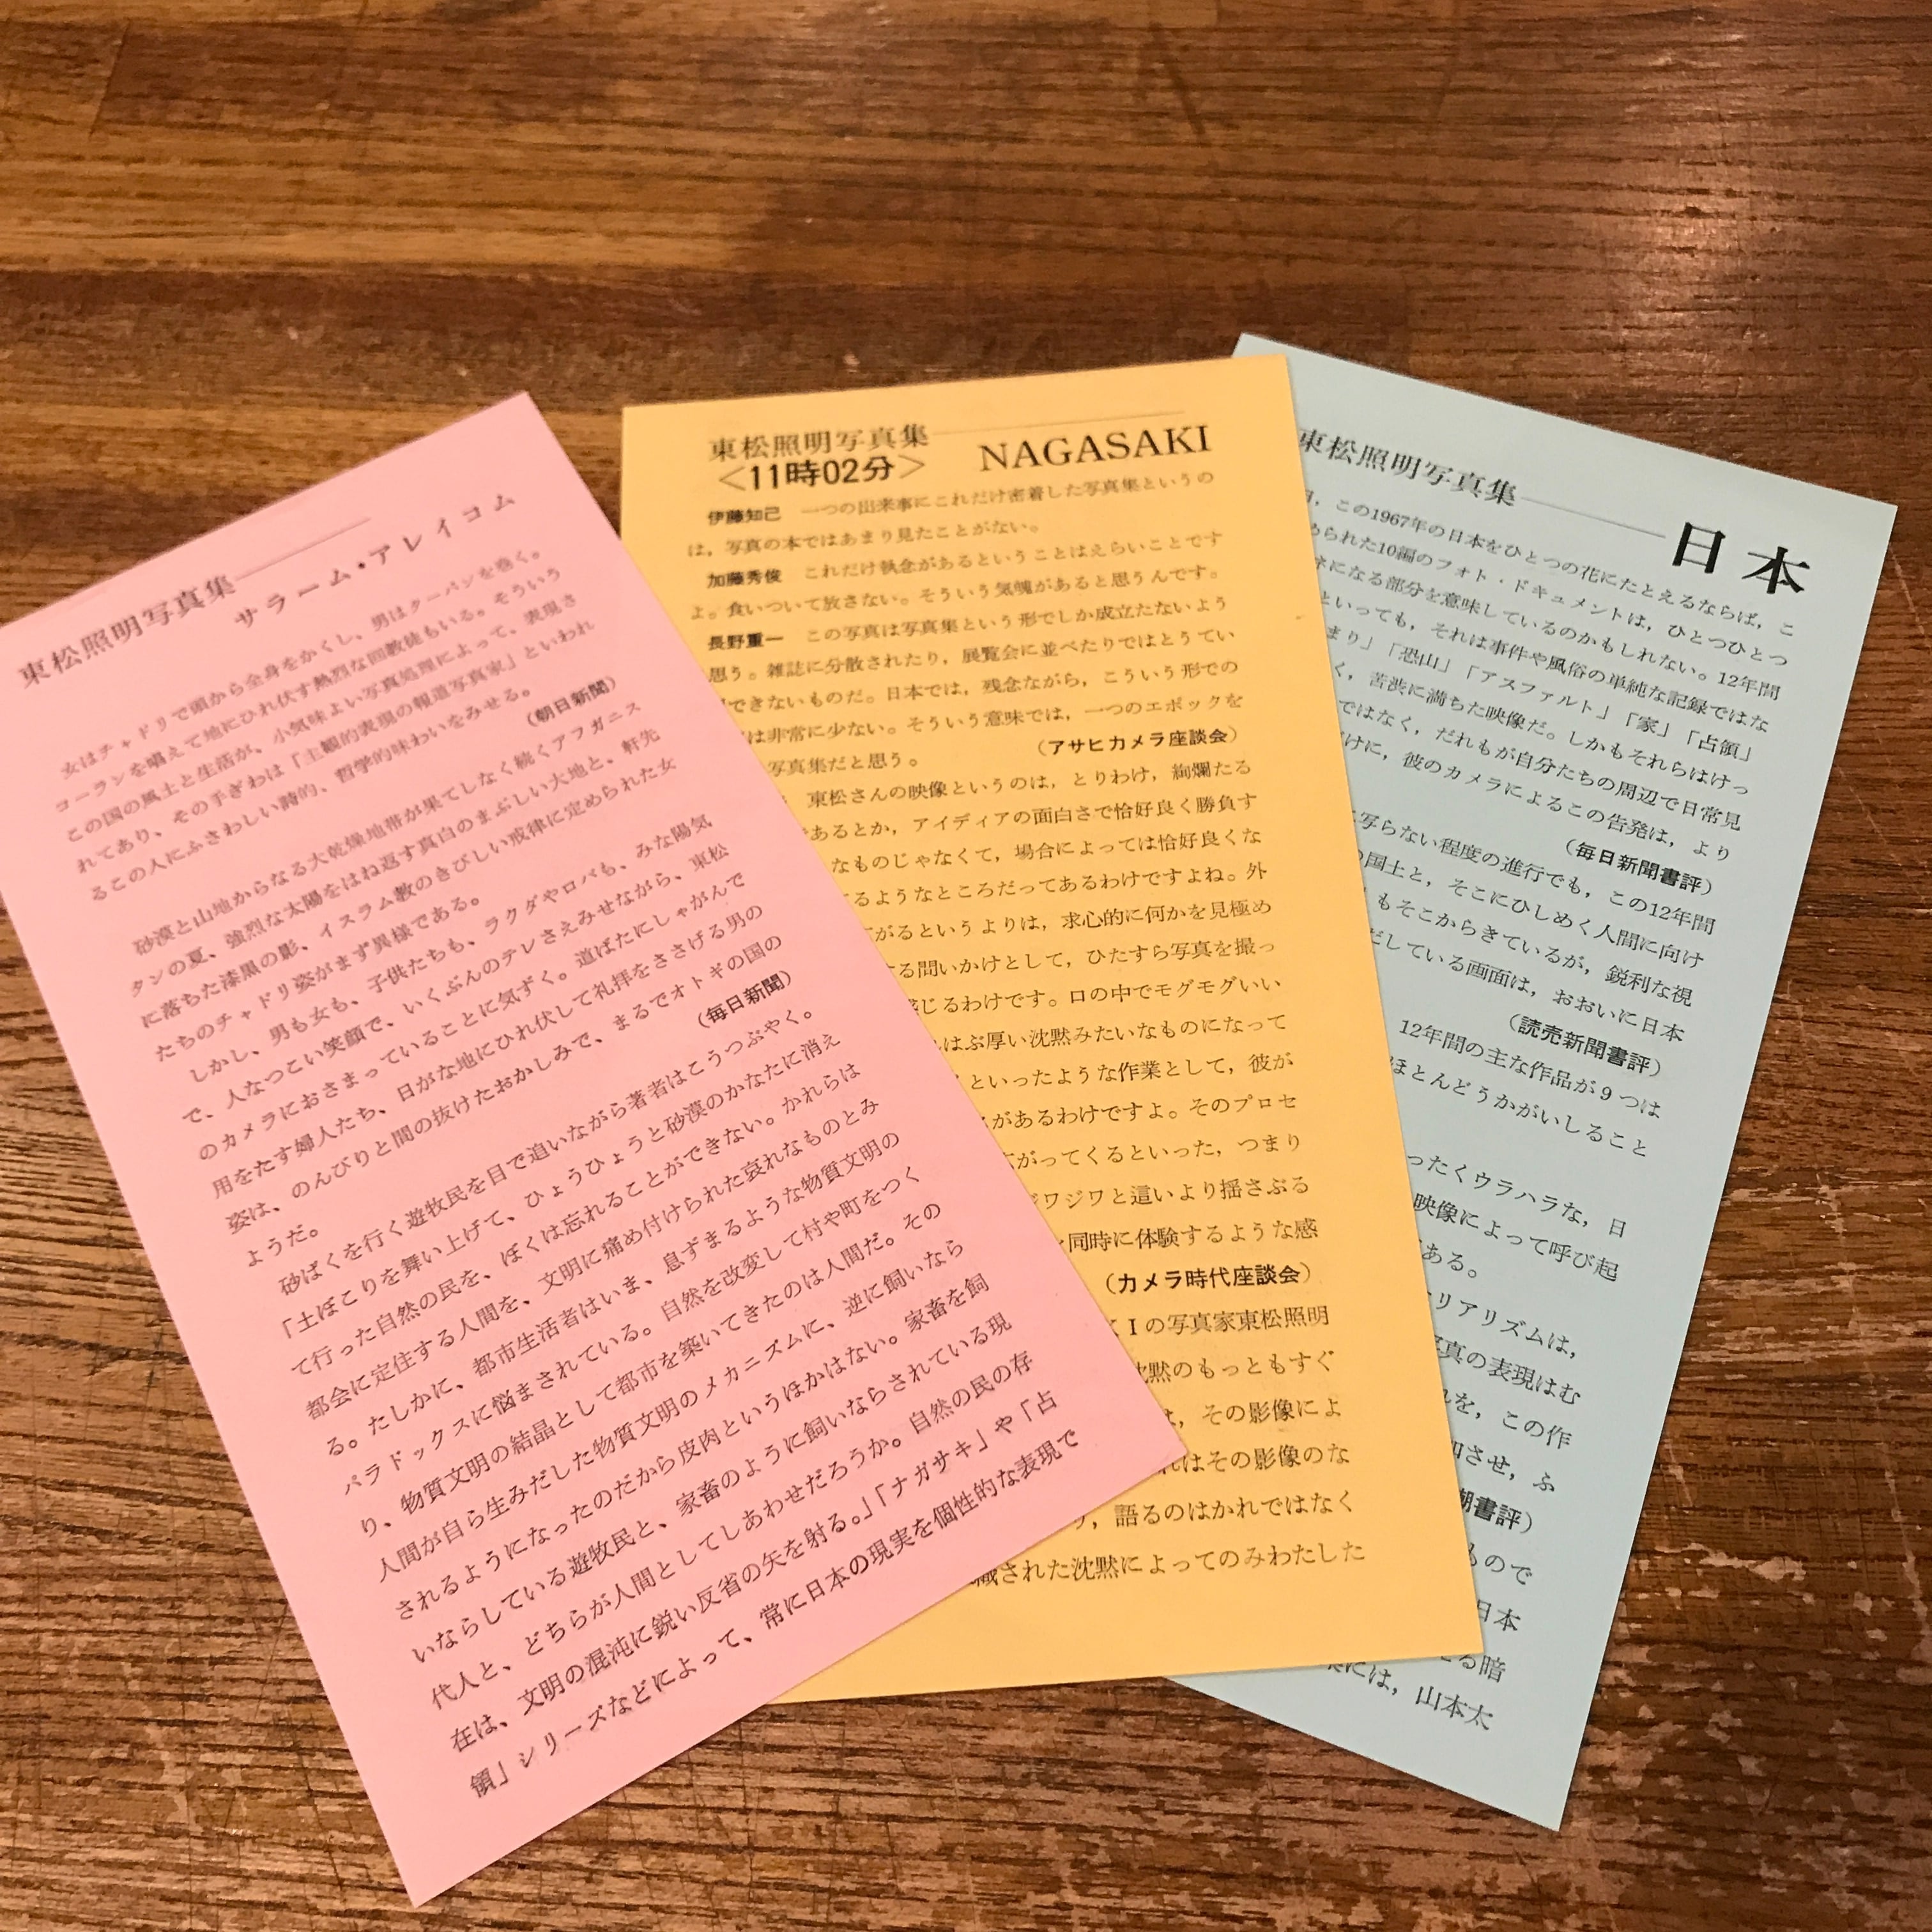 東松照明写真集
サラーム・アレイコム
女はチャドリで頭から全身をかくし、男はターバンを巻く。
コーランを唱えて地にひれ伏す熱烈な回教徒もいる。そういう
この国の風土と生活が、小気味よい写真処理によって、表現さ
れてあり、その手ぎわは「主観的表現の報道写真家」といわれ
るこの人にふさわしい詩的、哲学的味わいをみせる。
(朝日新聞)
砂漠と山地からなる大乾燥地帯が果てしなく続くアフガニス
タンの夏、強烈な太陽をはね返す真白のまぶしい大地と、軒先
に落ちた漆黒の影、イスラム教のきびしい戒律に定められた女
たちのチャドリ姿がまず異様である。
しかし、男も女も、子供たちも、ラクダやロバも、みな陽気
で、人なつこい笑顔で、いくぶんのテレさえみせながら、東松
のカメラにおさまっていることに気ずく。道ばたにしゃがんで
用をたす婦人たち、日がな地にひれ伏して礼拝をささげる男の
姿は、のんびりと間の抜けたおかしみで、まるでオトギの国の
ようだ。
(毎日新聞)
砂ばくを行く遊牧民を目で追いながら著者はこうつぶやく。
「土ぼこりを舞い上げて、ひょうひょうと砂漠のかなたに消え
て行った自然の民を、ぼくは忘れることができない。かれらは
都会に定住する人間を、文明に痛め付けられた哀れなものとみ
る。たしかに、都市生活者はいま、息ずまるような物質文明の
パラドックスに悩まされている。自然を改変して村や町をつく
り、物質文明の結晶として都市を築いてきたのは人間だ。その
人間が自ら生みだした物質文明のメカニズムに、逆に飼いなら
されるようになったのだから皮肉というほかはない。家畜を飼
いならしている遊牧民と、家畜のように飼いならされている現
代人と、どちらが人間としてしあわせだろうか。自然の民の存
在は、文明の混沌に鋭い反省の矢を射る。」「ナガサキ」や「占
領」シリーズなどによって、常に日本の現実を個性的な表現で
東松照明写真集
<11時02分> NAGASAKI
伊藤知己 一つの出来事にこれだけ密着した写真集というの
は，写真の本ではあまり見たことがない。
加藤秀俊 これだけ執念があるということはえらいことです
よ。食いついて放さない。そういう気魄があると思うんです。
長野重一 この写真は写真集という形でしか成立たないよう
思う。雑誌に分散されたり，展覧会に並べたりではとうてい
できないものだ。日本では，残念ながら，こういう形での
は非常に少ない。そういう意味では，一つのエポックを
写真集だと思う。
(アサヒカメラ座談会)
東松さんの映像というのは，とりわけ，絢爛たる
であるとか，アイディアの面白さで恰好良く勝負す
なものじゃなくて，場合によっては恰好良くな
るようなところだってあるわけですよね。外
がるというよりは，求心的に何かを見極め
する問いかけとして，ひたすら写真を撮っ
感じるわけです。口の中でモグモグいい
はぶ厚い沈黙みたいなものになって
といったような作業として，彼が
があるわけですよ。そのプロセ
がってくるといった，つまり
ジワジワと這いより揺さぶる
同時に体験するような感
(カメラ時代座談会)
Iの写真家東松照明
沈黙のもっともすぐ
，その影像によ
れはその影像のな
，語るのはかれではなく
織された沈黙によってのみわたした
東松照明写真集
日本
，この1967年の日本をひとつの花にたとえるならば，こ
められた10編のフォト・ドキュメントは，ひとつひとつ
ネになる部分を意味しているのかもしれない。12年間
といっても，それは事件や風俗の単純な記録ではな
まり」「恐山」「アスファルト」「家」「占領」
く，苦渋に満ちた映像だ。しかもそれらはけっ
ではなく，だれもが自分たちの周辺で日常見
だけに，彼のカメラによるこの告発は，より
(毎日新聞書評)
写らない程度の進行でも，この12年間
の国土と，そこにひしめく人間に向け
もそこからきているが，鋭利な視
だしている画面は，おおいに日本
(読売新聞書評)
12年間の主な作品が9つは
ほとんどうかがいしること
ったくウラハラな，日
映像によって呼び起
ある。
リアリズムは，
写真の表現はむ
を，この作
させ，ふ
潮書評)
もので
日本
る暗
には，山本太